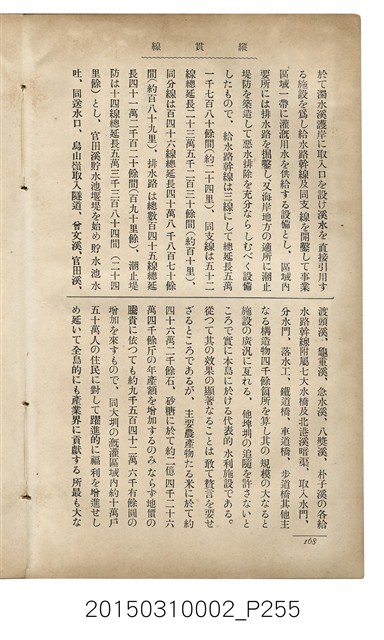 線貫縱
於て濁水溪護岸に取入口を設け溪水を直接引用す
る施設を爲し給水路幹線及同支線を開鑿して事業
區域一帶に灌漑用水を供給する設備とし、區域内
要所には排水路を掘鑿し又海岸地方の適所に潮止
堤防を築造して惡水排除を充分ならしむべく設備
したもので、給水路幹線は三線にして總延長五萬
一千七百八十餘間(約二十四里)、同支線は五十二
線總延長二十三萬五千二百三十餘間(約百十里)、
同分線は百四十六線總延長四十萬八千八百七十餘
間(約百八十九里)、排水路は總數百四十五線總延
長四十一萬二千百二十餘間(百九十里餘)、潮止堤
防は十四線總延長五萬三千三百八十四間(二十四
里餘)とし、官田溪貯水池堰堤を始め貯水池水
吐、同送水口、烏山嶺取入隧道、曾文溪、官田溪、
渡頭溪、龜重溪、急水溪、八獎溪、朴子溪の各給
水路幹線附屬七大水橋及北港溪暗渠、取入水門、
分水門、落水工、鐵道橋、車道橋、步道橋其他主
なる構造物四千餘箇所を算し其の規模の大なると
施設の廣汎に亙れる、他埤圳の追隨を許さないと
ころで實に本島に於ける代表的水利施設である。
從つて其の效果の顯著なることは敢て贅言を要せ
ざるところであるが、主要農產物たる米に於て約
四十六萬二千餘石、砂糖に於て約二億四千二十六
萬四千餘斤の年產額を增加するのみならず地價の
騰貴に依つても約九千五百四十二萬六千有餘圓の
增加を來すもので、同大圳の灌漑區域内約十萬戶
五十萬人の住民に對して躍進的に福利を增進せし
め延いて全島的にも產業界に貢獻する所最も大な
168
20150310002_P255